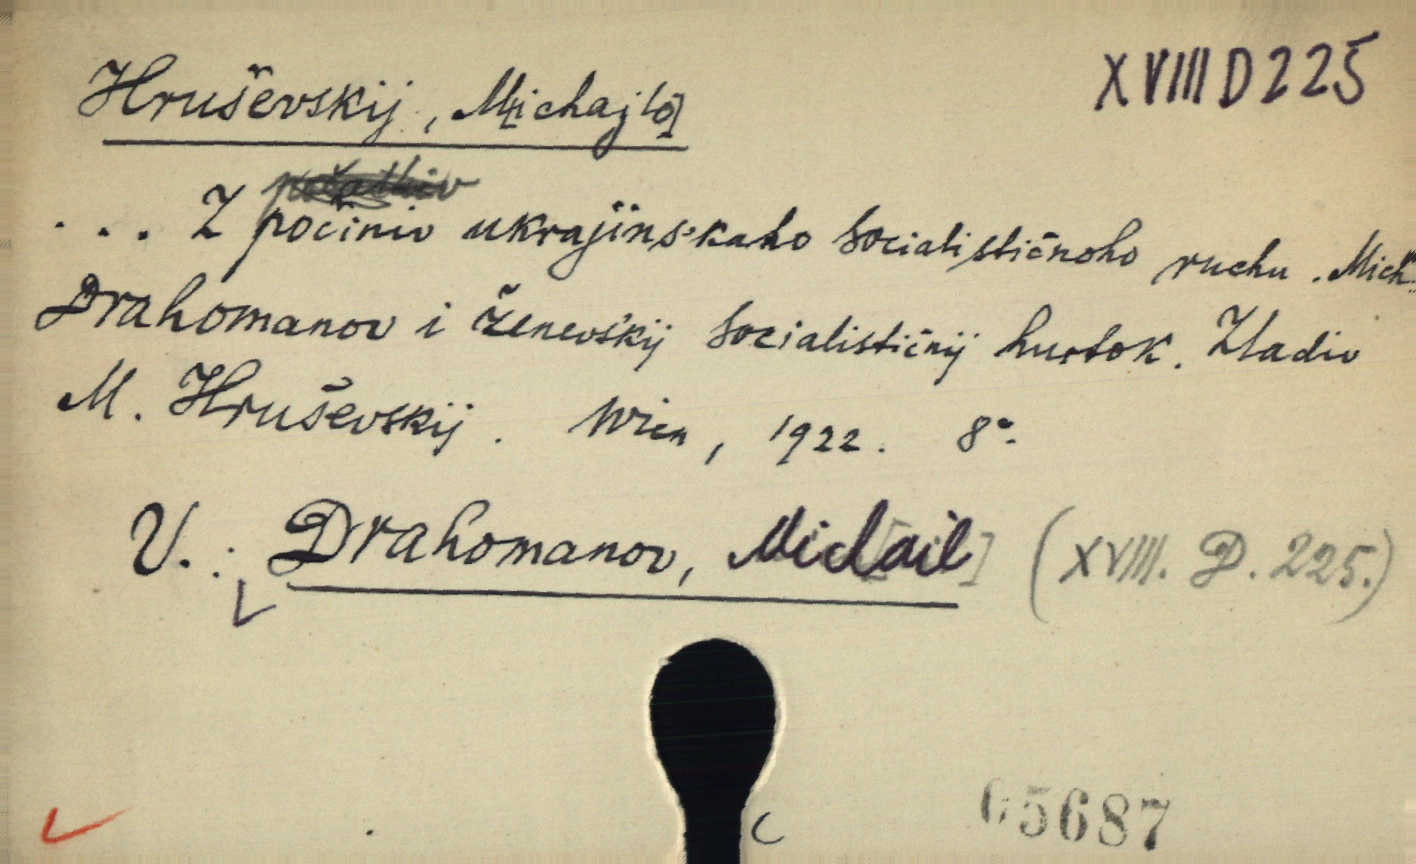 XVIII D 225
Hruševskij, M[ichajlo]
... Z počiniv ukrajins'kaho socialističnoho ruchu. Mich.
Drahomanov i ženevs'kij socialističnij hurtok. Zladiv
M. Hruševskij. Wien, 1922. 8°.
V.: Drahomanov, Mich[ail] (XVIII. D. 225.)
65687